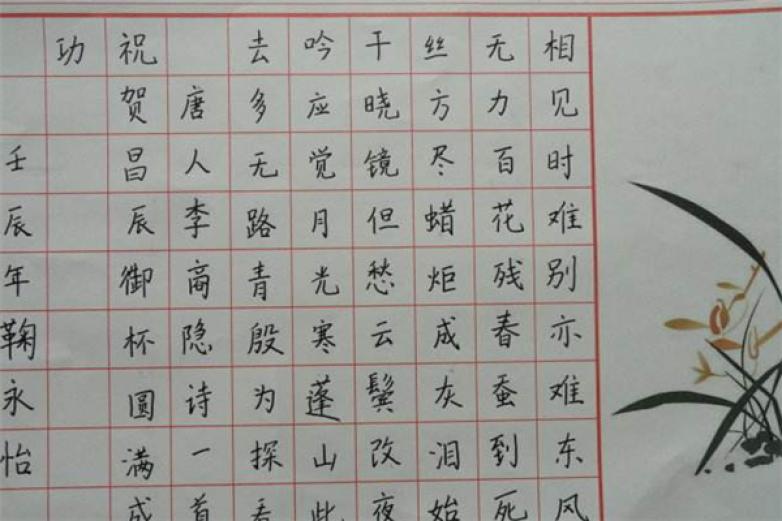 相见时难别亦难东风
无力百花残春蚕到死
丝方尽蜡炬成灰泪始
干晓镜但愁云鬓改夜
吟应觉月光寒蓬山此
去多无路青殷为探看
唐人李商隐诗一首
祝贺昌辰御杯圆满成
功
壬辰年鞠永怡